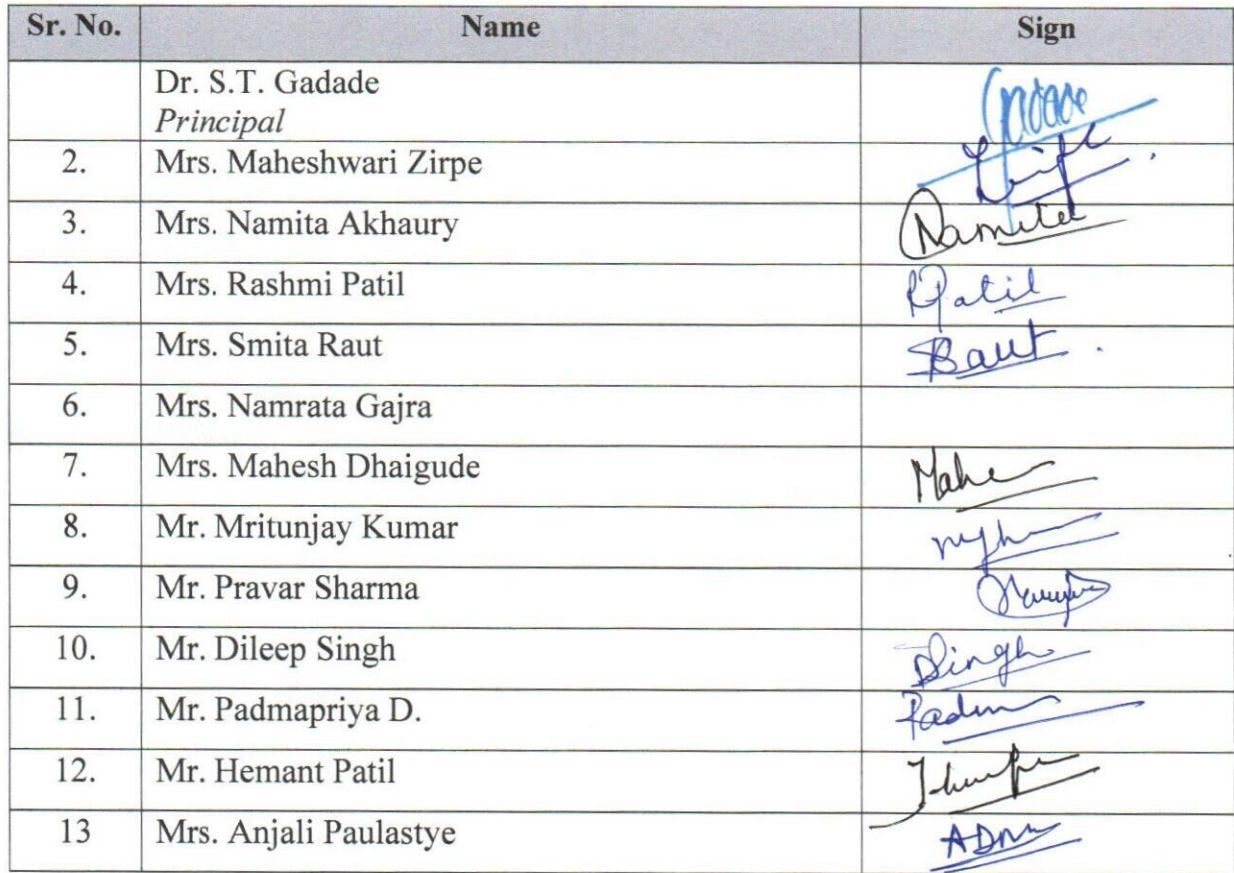 Sr. No. Name Sign
Dr. S.T. Gadade Gadade
Principal
2. Mrs. Maheshwari Zirpe Zirpe
3. Mrs. Namita Akhaury Namita
4. Mrs. Rashmi Patil RPatil
5. Mrs. Smita Raut SRaut
6. Mrs. Namrata Gajra
7. Mrs. Mahesh Dhaigude
8. Mr. Mritunjay Kumar
9. Mr. Pravar Sharma
10. Mr. Dileep Singh DSingh
11. Mr. Padmapriya D.
12. Mr. Hemant Patil
13 Mrs. Anjali Paulastye